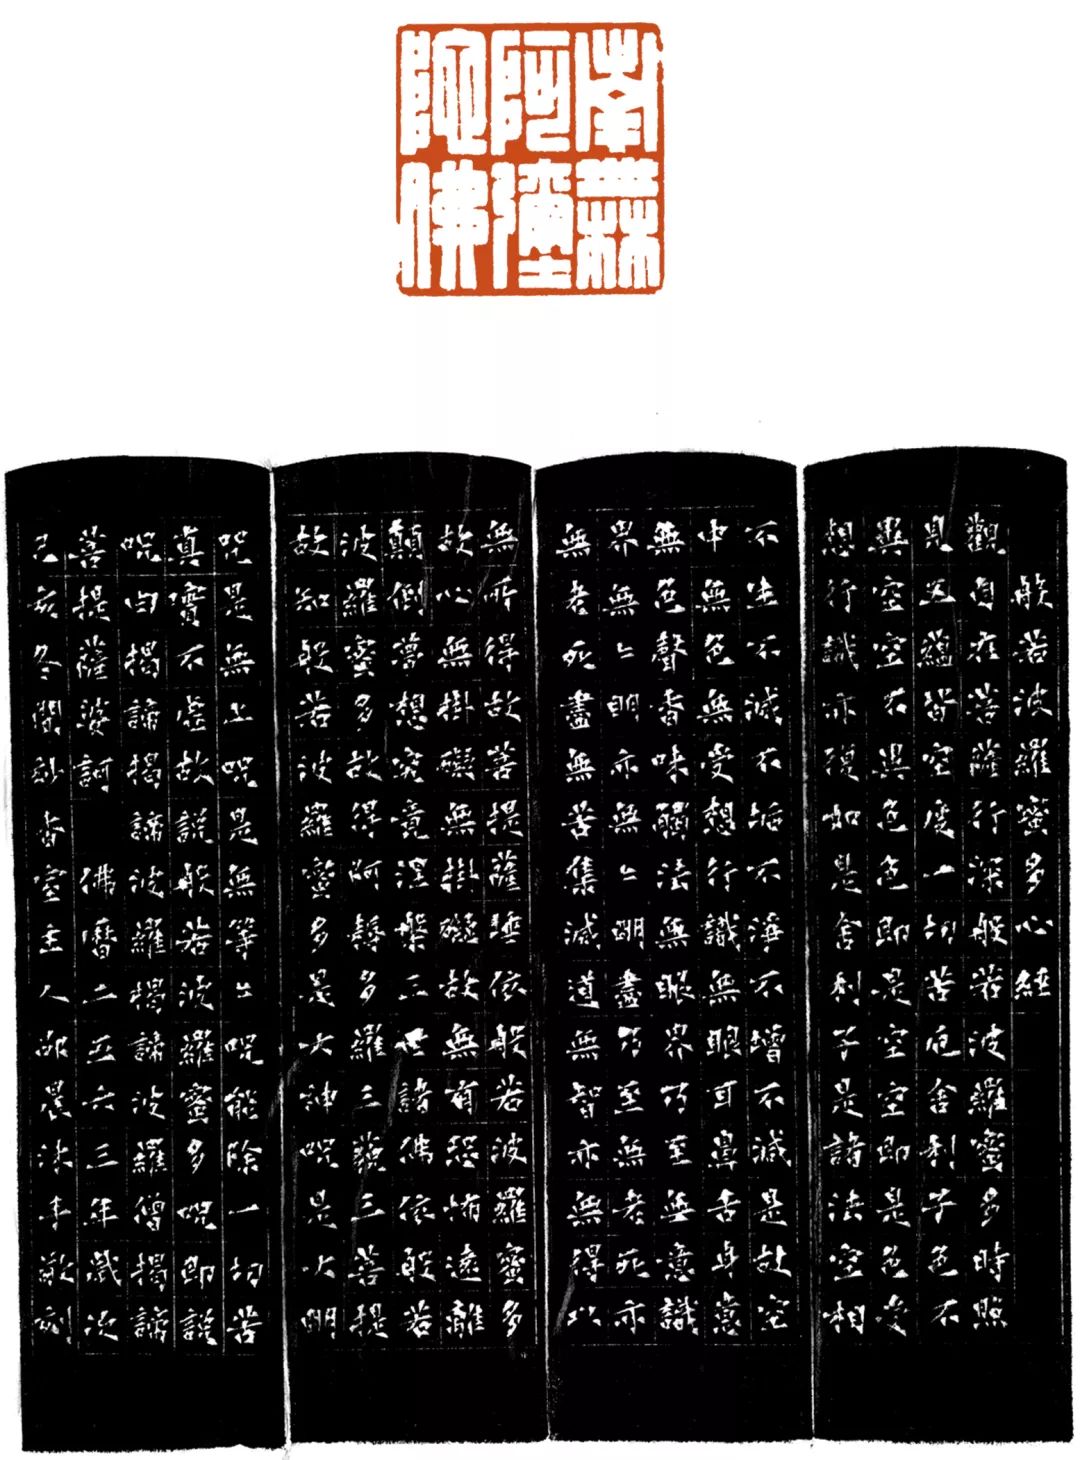 南無
阿彌
陀佛
般若波羅蜜多心經
觀自在菩薩行深般若波羅蜜多時照
見五蘊皆空度一切苦厄舍利子色不
異空空不異色色即是空空即是色受
想行識亦復如是舍利子是諸法空相
不生不滅不垢不淨不增不減是故空
中無色無受想行識無眼耳鼻舌身意
無色聲香味觸法無眼界乃至無意識
界無〻明亦無〻明盡乃至無老死亦
無老死盡無苦集滅道無智亦無得以
無所得故菩提薩埵依般若波羅蜜多
故心無掛礙無掛礙故無有恐怖遠離
顛倒夢想究竟涅槃三世諸佛依般若
波羅蜜多故得阿耨多羅三藐三菩提
故知般若波羅蜜多是大神咒是大明
咒是無上咒是無等〻咒能除一切苦
真實不虛故說般若波羅蜜多咒即說
咒曰揭諦揭諦波羅揭諦波羅僧揭諦
菩提薩婆訶 佛曆二五六三年歲次
己亥冬聞妙香室主人邵晨沐手敬刻